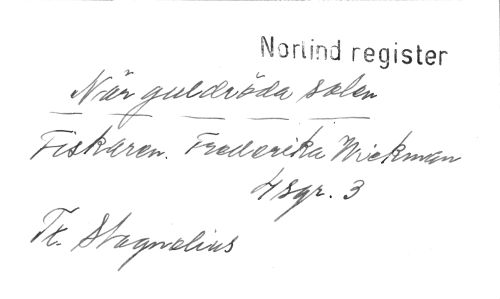 Norlind register
När guldröda solen
Fiskaren. Frederika Wickman
4 sgr. 3
Tx. Stagnelius